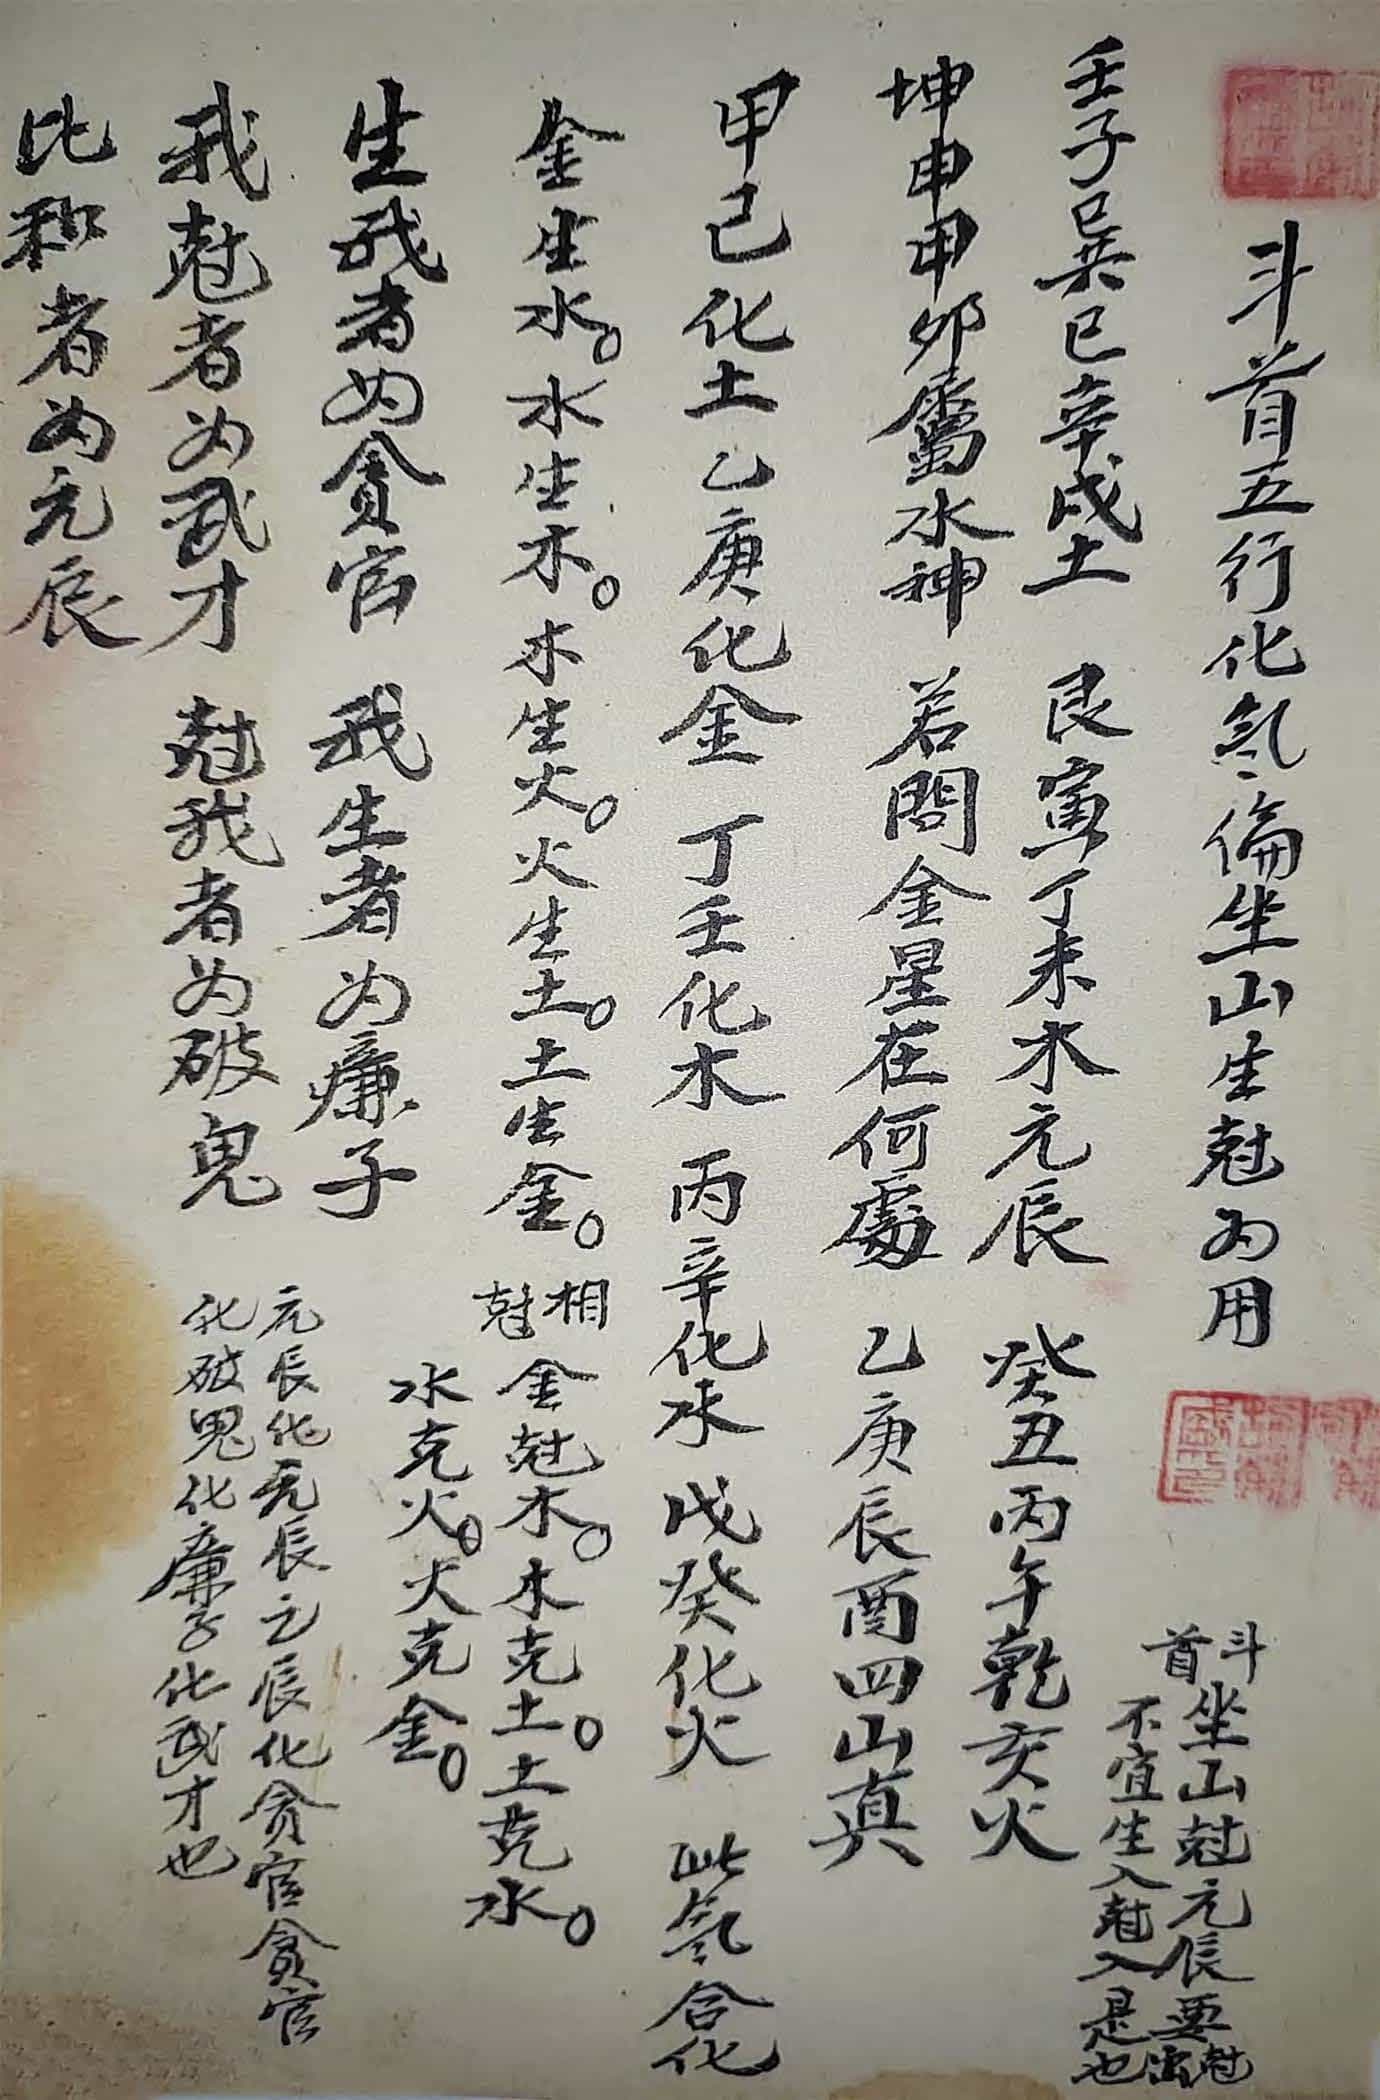 斗首五行化氣偏坐山生尅為用
斗首
坐山尅元辰要尅出
不宜生入尅入是也
壬子巽巳辛戌土 艮寅丁未木元辰 癸丑丙午乾亥火
坤申甲卯屬水神 若問金星在何處 乙庚辰酉四山真
甲己化土乙庚化金 丁壬化木 丙辛化水 戊癸化火 此氣合化
金生水。水生木。木生火。火生土。土生金。
相尅
金尅木。木克土。土克水。
水克火。火克金。
生我者为貪官 我生者为廉子
我尅者为武才 尅我者为破鬼
元辰化元辰之辰化貪官貪官
化破鬼化廉子化武才也
比和者为元辰